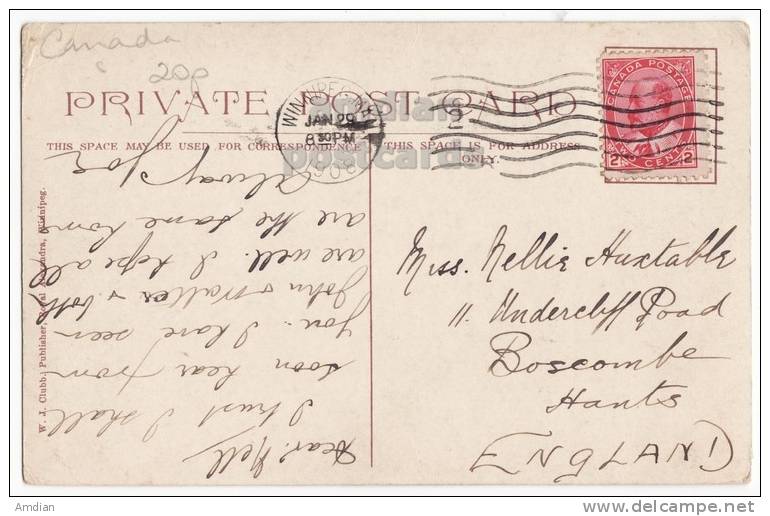 Canada
20p
PRIVATE POST CARD
THIS SPACE MAY BE USED FOR CORRESPONDENCE
THIS SPACE IS FOR ADDRESS ONLY.
WINNIPEG, MAN.
JAN 29
8 30 PM
1908
CANADA POSTAGE
2 CENTS 2
Amdian
postcards
Dear Nell
I trust I shall
soon hear from
you. I have seen
John & Walter & both
are well. I hope all
are the same home
always Joe
Miss. Nellie Huxtable
11. Undercliff Road
Boscombe
Hants
ENGLAND
W. J. Clubb, Publisher, Royal Alexandra, Winnipeg.
Amdian
http://www.delcampe.net